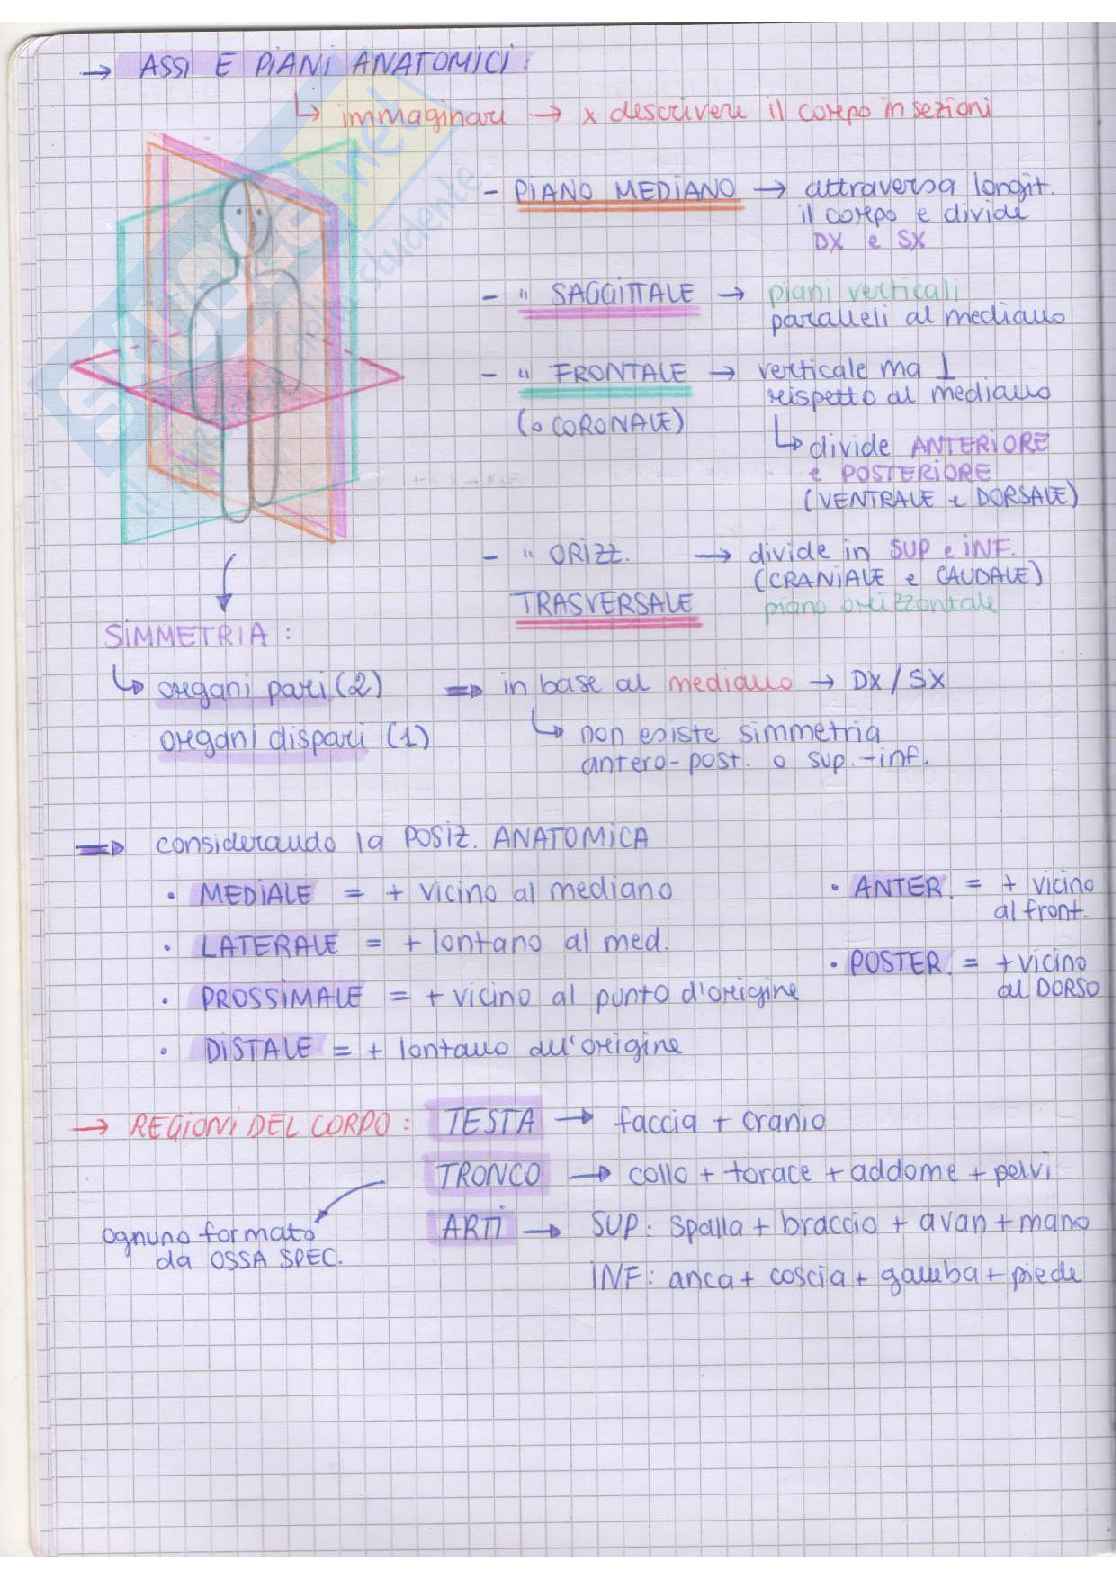 → ASSI E PIANI ANATOMICI:
↳ immaginari → x descrivere il corpo in sezioni
- PIANO MEDIANO → attraversa longit.
il corpo e divide
DX e SX
- " SAGGITTALE → piani verticali
paralleli al mediano
- " FRONTALE → verticale ma ⊥
(o CORONALE) rispetto al mediano
↳ divide ANTERIORE
e POSTERIORE
(VENTRALE e DORSALE)
- " ORIZZ. → divide in SUP e INF.
(CRANIALE e CAUDALE)
TRASVERSALE piano orizzontale
SIMMETRIA:
↳ organi pari (2) ⇒ in base al mediano → DX/SX
organi dispari (1) ↳ non esiste simmetria
antero-post. o sup.-inf.
⇒ considerando la POSIZ. ANATOMICA
• MEDIALE = + vicino al mediano
• LATERALE = + lontano al med.
• PROSSIMALE = + vicino al punto d'origine
• DISTALE = + lontano all'origine
• ANTER. = + vicino
al front.
• POSTER. = + vicino
al DORSO
→ REGIONI DEL CORPO: TESTA → faccia + cranio
TRONCO → collo + torace + addome + pelvi
ognuno formato
da OSSA SPEC.
ARTI → SUP: spalla + braccio + avan + mano
INF: anca + coscia + gamba + piede